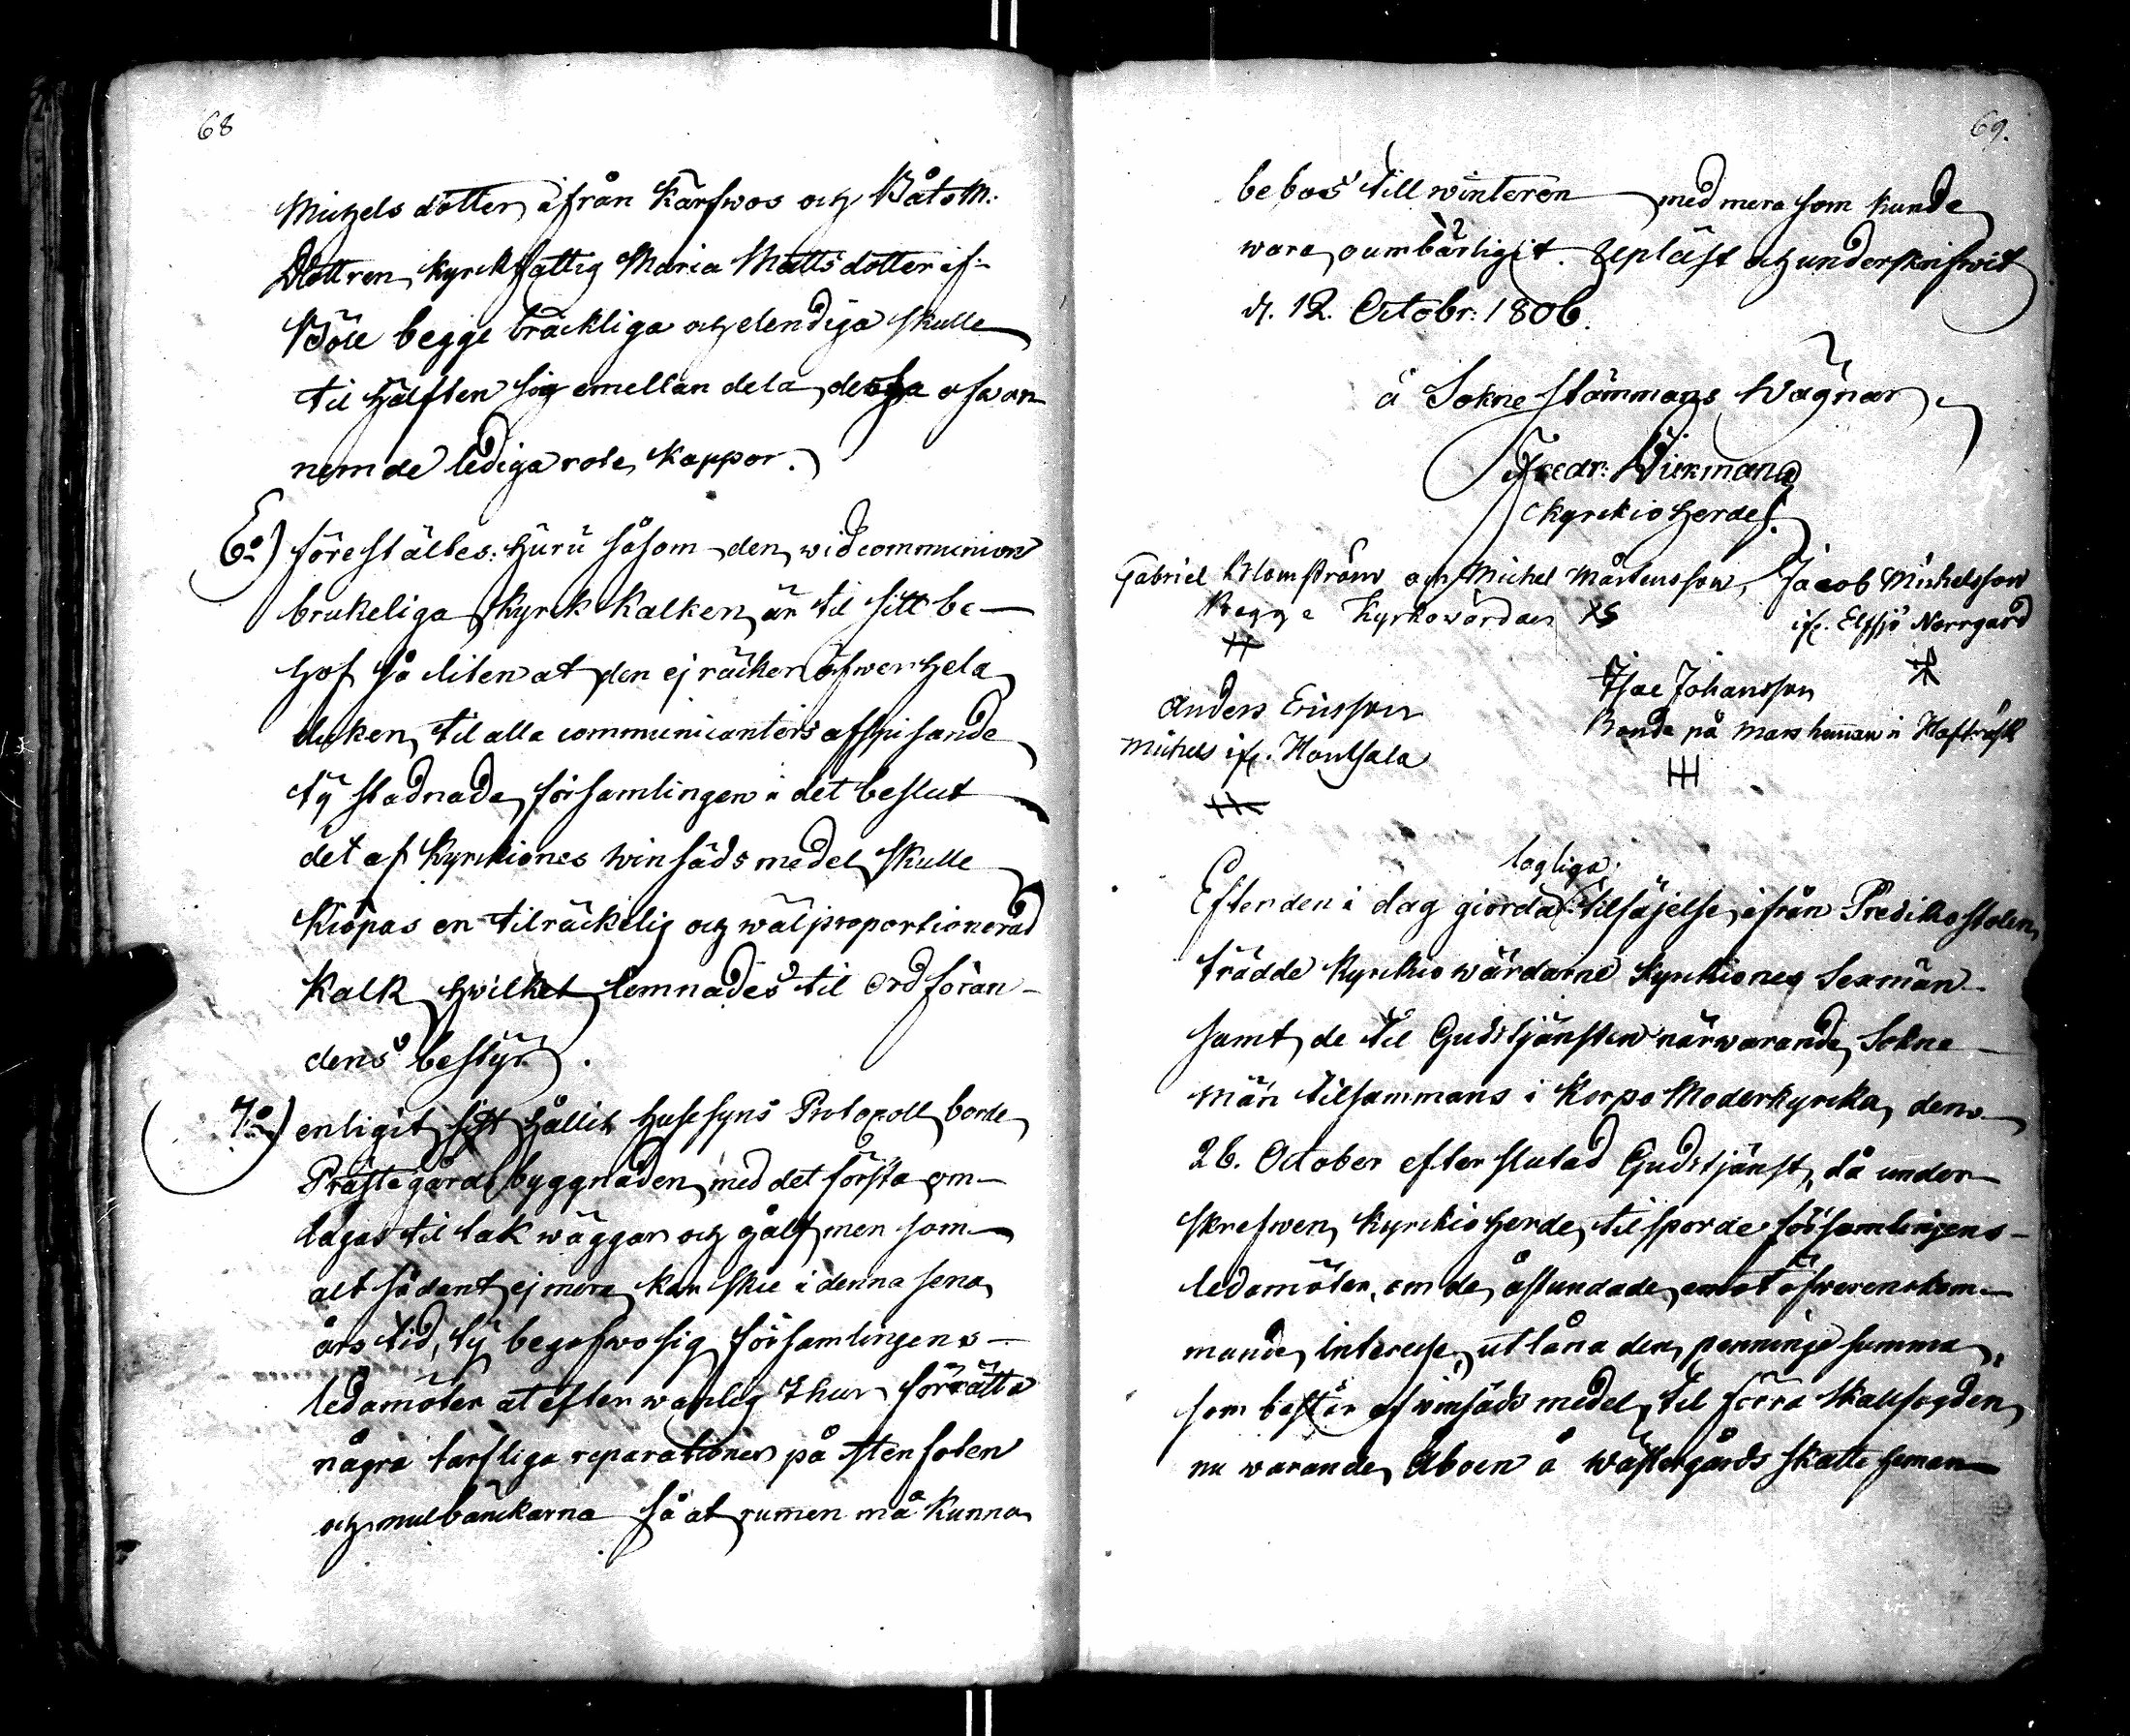 68
Michels dotter ifrån Kärfwos och Båtsm:
Dottren kyrckfattig Maria Mattsdotter if:
Böle begge bräckliga och elendiga skulle
til hälften sig emellan dela dessa ofwan
nemde lediga rote kappor.
6o) förestältes: huru såsom den wid communion
brukeliga Kyrck kalken är til sitt be-
hof så liten at den ej räcker öfwer hela
duken til alla communicanters afspisande
ty stadnade församlingen i det beslut
det af Kyrckiones winsäds medel skulle
Kiöpas en tilräckelig och wäl proportionerad
Kalk hwilket lemnades til ordföran-
dens bestyr.
7o) enligit sist hållit husesyns Protocoll borde
Prästegårds byggnaden med det första om-
lagas til tak wäggar och gålf men som
alt sådant ej mera kan skie i denna sena
års tid, ty begofwo sig församlingens
ledamöter at efter wanlig thur förrätta
några tarfliga reparationer på stenfoten
och mullbänckarna så at rumen må kunna
69.
bebos till winteren med mera som kunde
wara oumbärligit. Upläst och underskrifwit
d. 12. Octobr: 1806.
å Sokne stämmans wägnar
Fredr: Wickman
Kyrckioherde.
Gabriel Blomström och Michel Mårtensson, Jacob Michelsson
Begge Kyrkowärdar if. Elfsjö Norrgård
Isac Johansson
Anders Ericsson Bonde på Mars hemman i Hafträsk
Michels if. Houtsala
lagliga
Efter den i dag giorda tilsäjelse ifrån Predikostolen
trädde kyrckiowärdarne Kyrckiones Sexmän
samt de til Gudstjänsten närwarande Sokne
män tilsammans i Korpo Moderkyrcka den
26. October efter slutad Gudstjänst, då under
skrefwen Kyrckioherde tilsporde församlingens
ledamöter, om de åstundade emot öfwerenskom-
mande interesse utlåna den penninge summa
som består af winsäds medel, til förra Skallfogden
nu warande Åboen å Wästergårds skatte heman